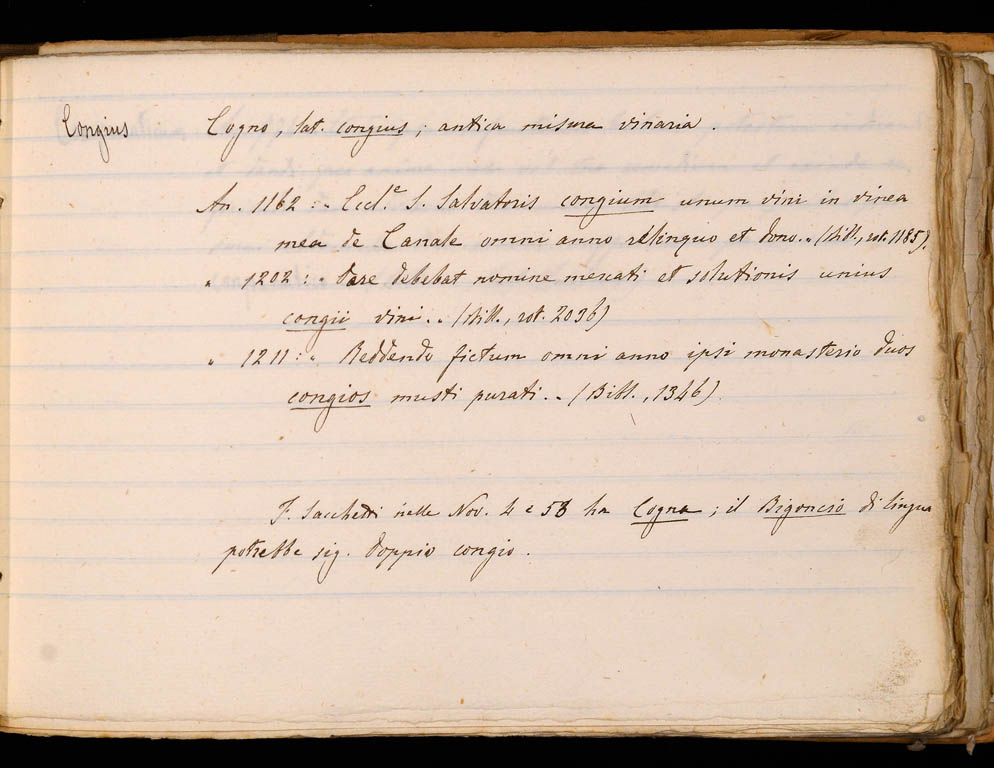 Congius Cogno, lat. congius; antica misura vinaria.
An. 1162: „ Eccl.e S. Salvatoris congium unum vini in vinea
mea de Canale omni anno relinquo et dono. „ (Bibl., rot. 1185).
„ 1202: „ Dare debebat nomine mercati et solutionis unius
congii vini. „ (Bibl., rot. 2036)
„ 1211: „ Reddendo fictum omni anno ipsi monasterio duos
congios musti purati. „ (Bibl., 1346)
F. Sacchetti nelle Nov. 4 e 58 ha Cogna; il Bigoncio di lingua
potrebbe sig. doppio congio.